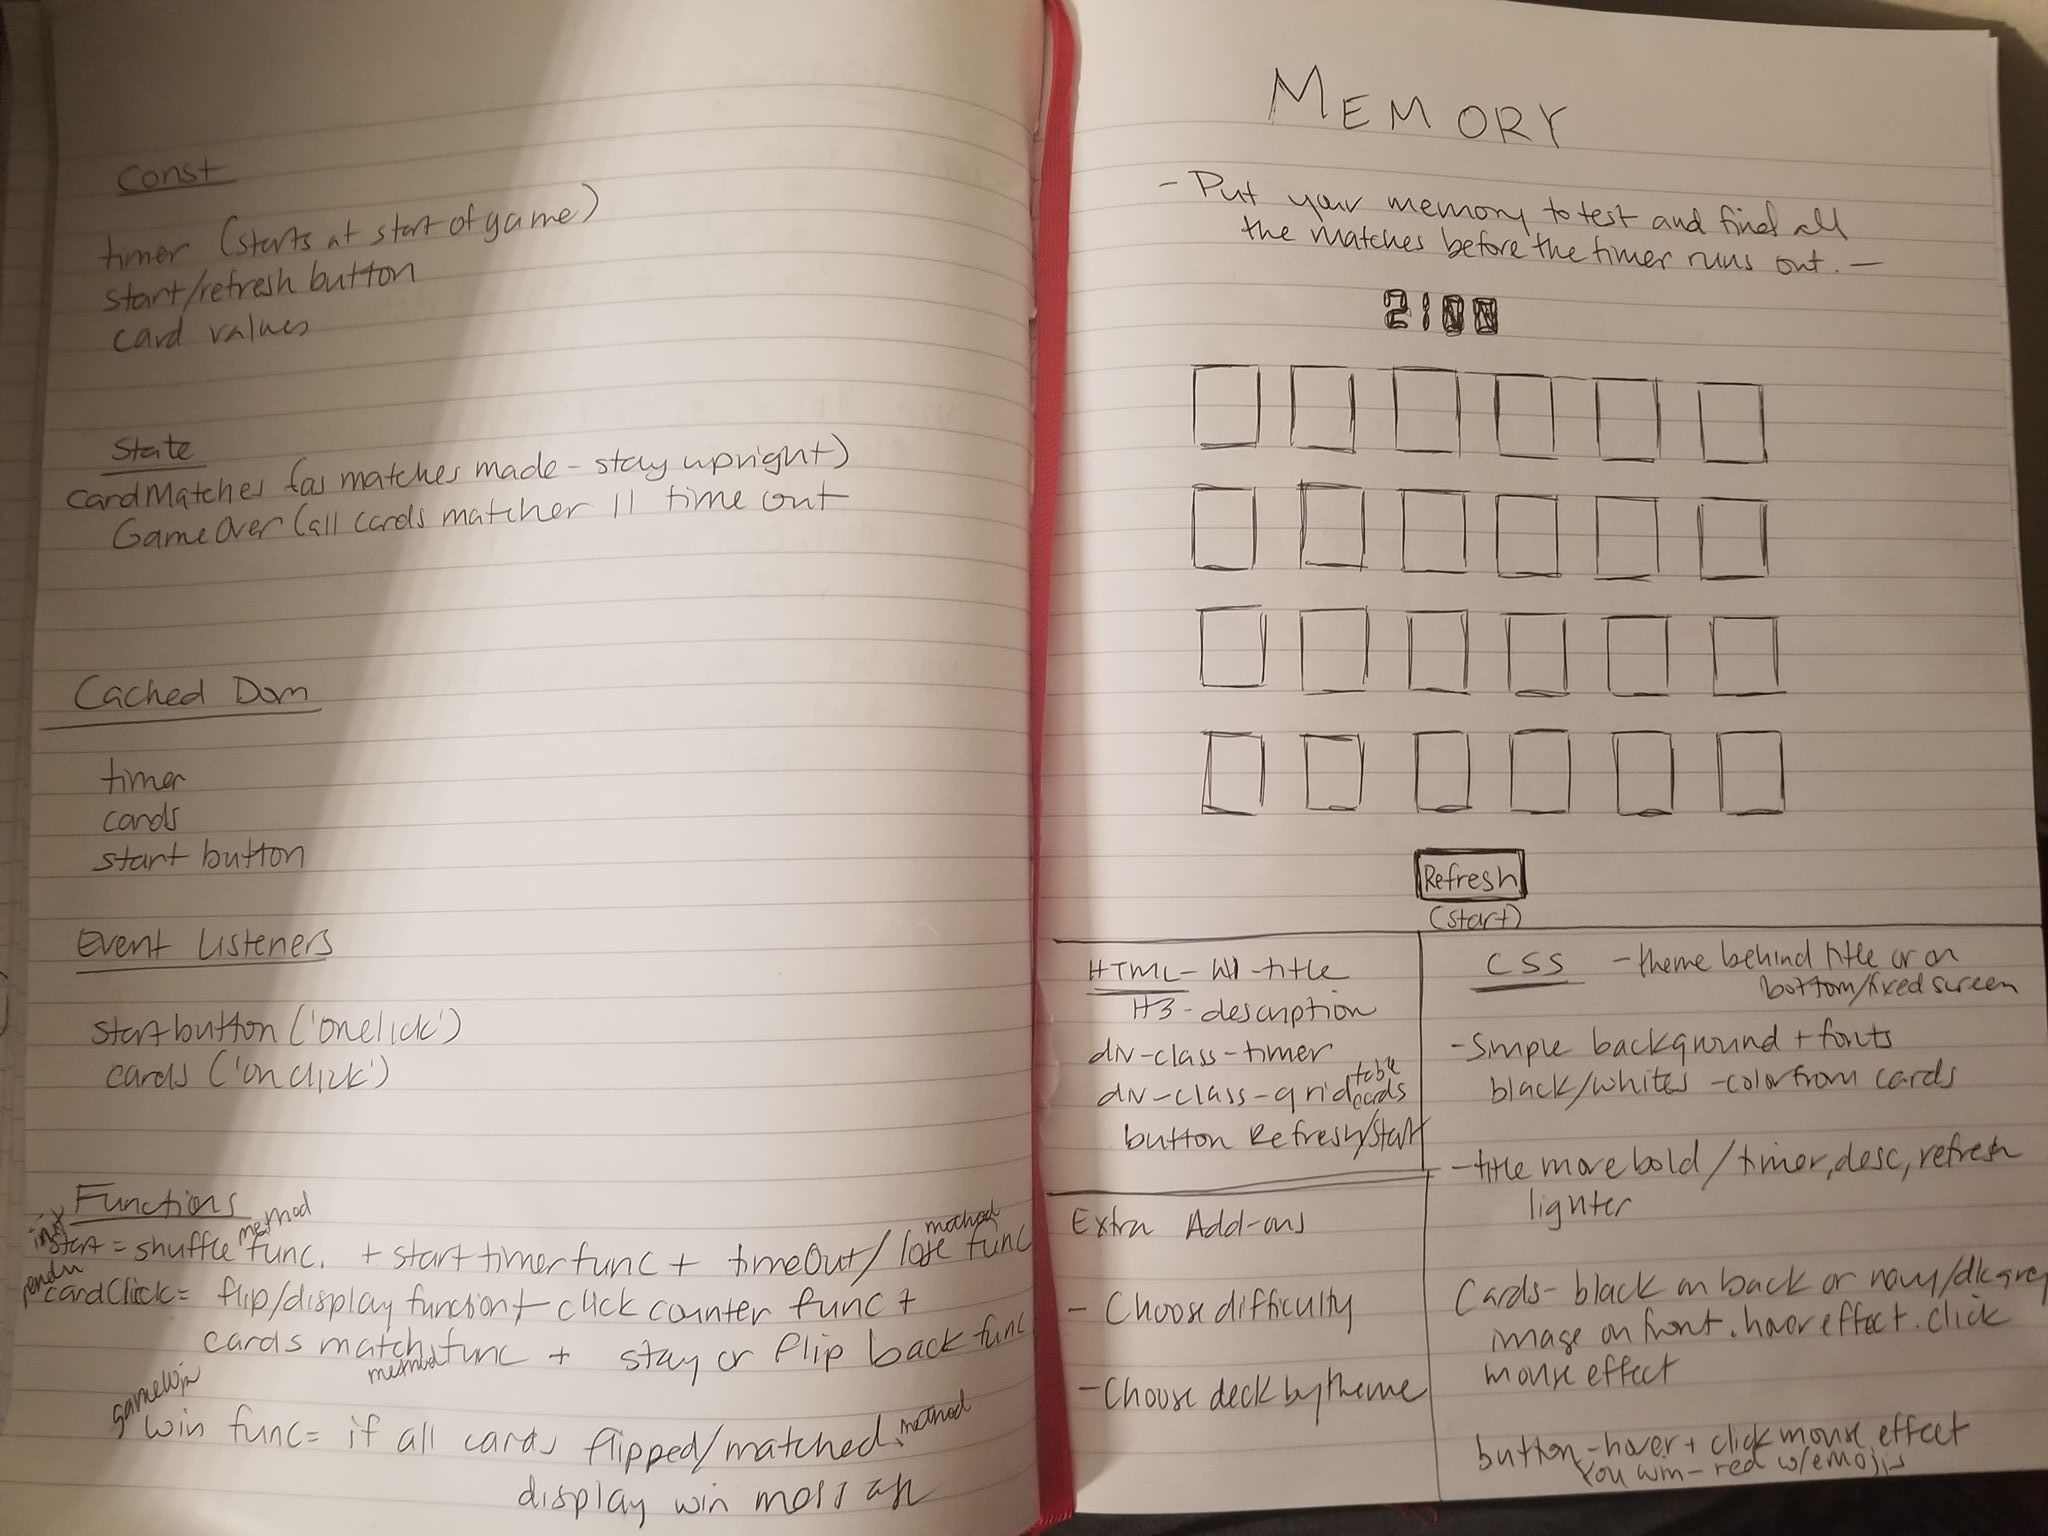 Const
timer (starts at start of game)
start/refresh button
card values
State
cardMatches (as matches made - stay upright)
GameOver (all cards matcher || time out
Cached Dom
timer
cards
start button
Event Listeners
startbutton ('onclick')
cards ('onclick')
Functions
init
method
method
start = shuffle func. + start timer func + timeOut/ lose func
cardClick = flip/display function + click counter func +
cards match func + stay or flip back func
method
gameWin
win func = if all cards flipped/matched. method
display win message
MEMORY
- Put your memory to test and find all
the matches before the timer runs out. -
2:00
Refresh
(start)
HTML - H1 - title
H3 - description
div-class-timer
div-class-grid table
cards
button Refresh/start
Extra Add-ons
- Choose difficulty
- Choose deck by theme
CSS - theme behind title or on
bottom/fixed screen
- Simple background + fonts
black/whites - color from cards
- title more bold / timer, desc, refresh
lighter
Cards - black on back or navy/dk grey
image on front. hover effect. click
mouse effect
button - hover + click mouse effect
You win - red w/emojis